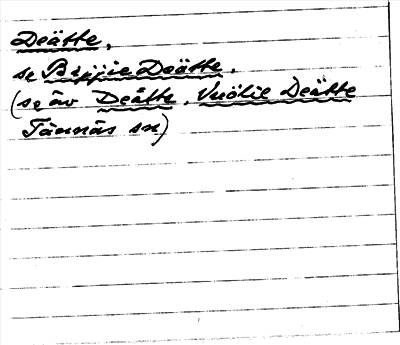 Deätte,
se Bijjie Deätte.
(se äv Deätte, Vuölie Deätte
Tännäs sn)